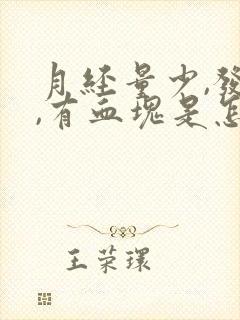 月経量少,發
,有血塊是怎
王荣環